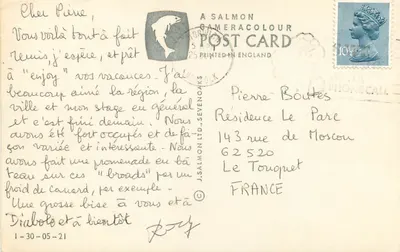 Cher Pierre,
Vous voilà tout à fait
remis, j'espère, et prêt
à "enjoy" vos vacances. J'ai
beaucoup aimé la région, la
ville et mon stage en général
et c'est fini demain. Nous
avons été fort occupés et de fa-
çon variée et intéressante. Nous
avons fait une promenade en ba-
teau sur ces "broads" par un
froid de canard, par exemple.
Une grosse bise à vous et à
Diabolo et à bientôt
1-30-05-21
A SALMON
CAMERACOLOUR
POST CARD
PRINTED IN ENGLAND
J. SALMON LTD., SEVENOAKS
10½P
Pierre Boutes
Résidence Le Parc
143 rue de Moscou
62520
Le Touquet
FRANCE